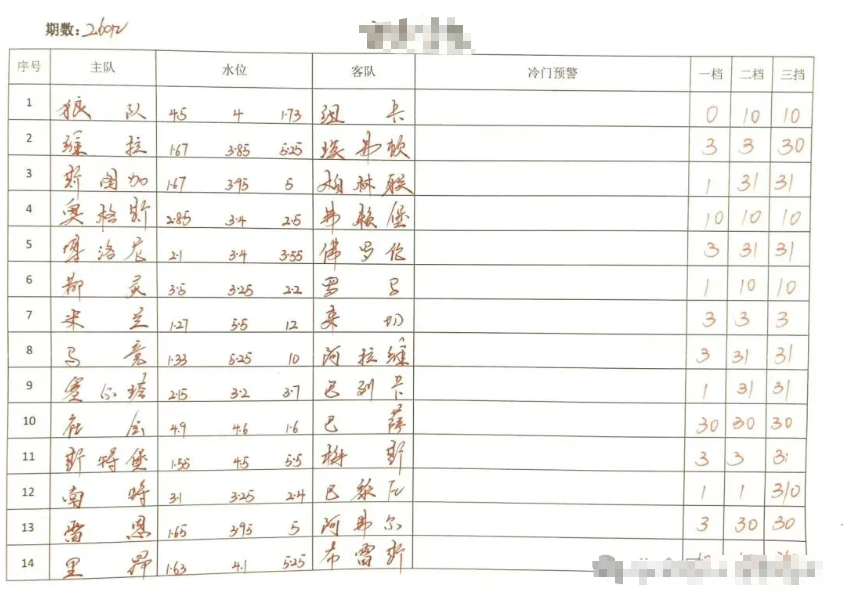 期数: 26012
序号 主队 水位 客队 冷门预警 一档 二档 三挡
1 狼队 4.5 4 1.73 纽卡 0 10 10
2 维拉 1.67 3.85 5.25 埃弗顿 3 3 30
3 斯图加 1.67 3.95 5 柏林联 1 31 31
4 奥格斯 2.85 3.4 2.5 弗赖堡 10 10 10
5 博洛尼 2.1 3.4 3.55 佛罗伦 3 31 31
6 都灵 3.5 3.25 2.2 罗马 1 10 10
7 米兰 1.27 5.5 12 莱切 3 3 3
8 马竞 1.33 5.25 10 阿拉维 3 31 31
9 塞尔塔 2.15 3.2 3.7 巴列卡 1 31 31
10 社会 4.9 4.6 1.6 巴萨 30 30 30
11 斯特堡 1.55 4.5 5.5 梅斯 3 3 31
12 南特 3.1 3.25 2.4 巴黎F 1 1 310
13 雷恩 1.65 3.95 5 阿弗尔 3 30 30
14 里昂 1.63 4.1 5.25 布雷斯